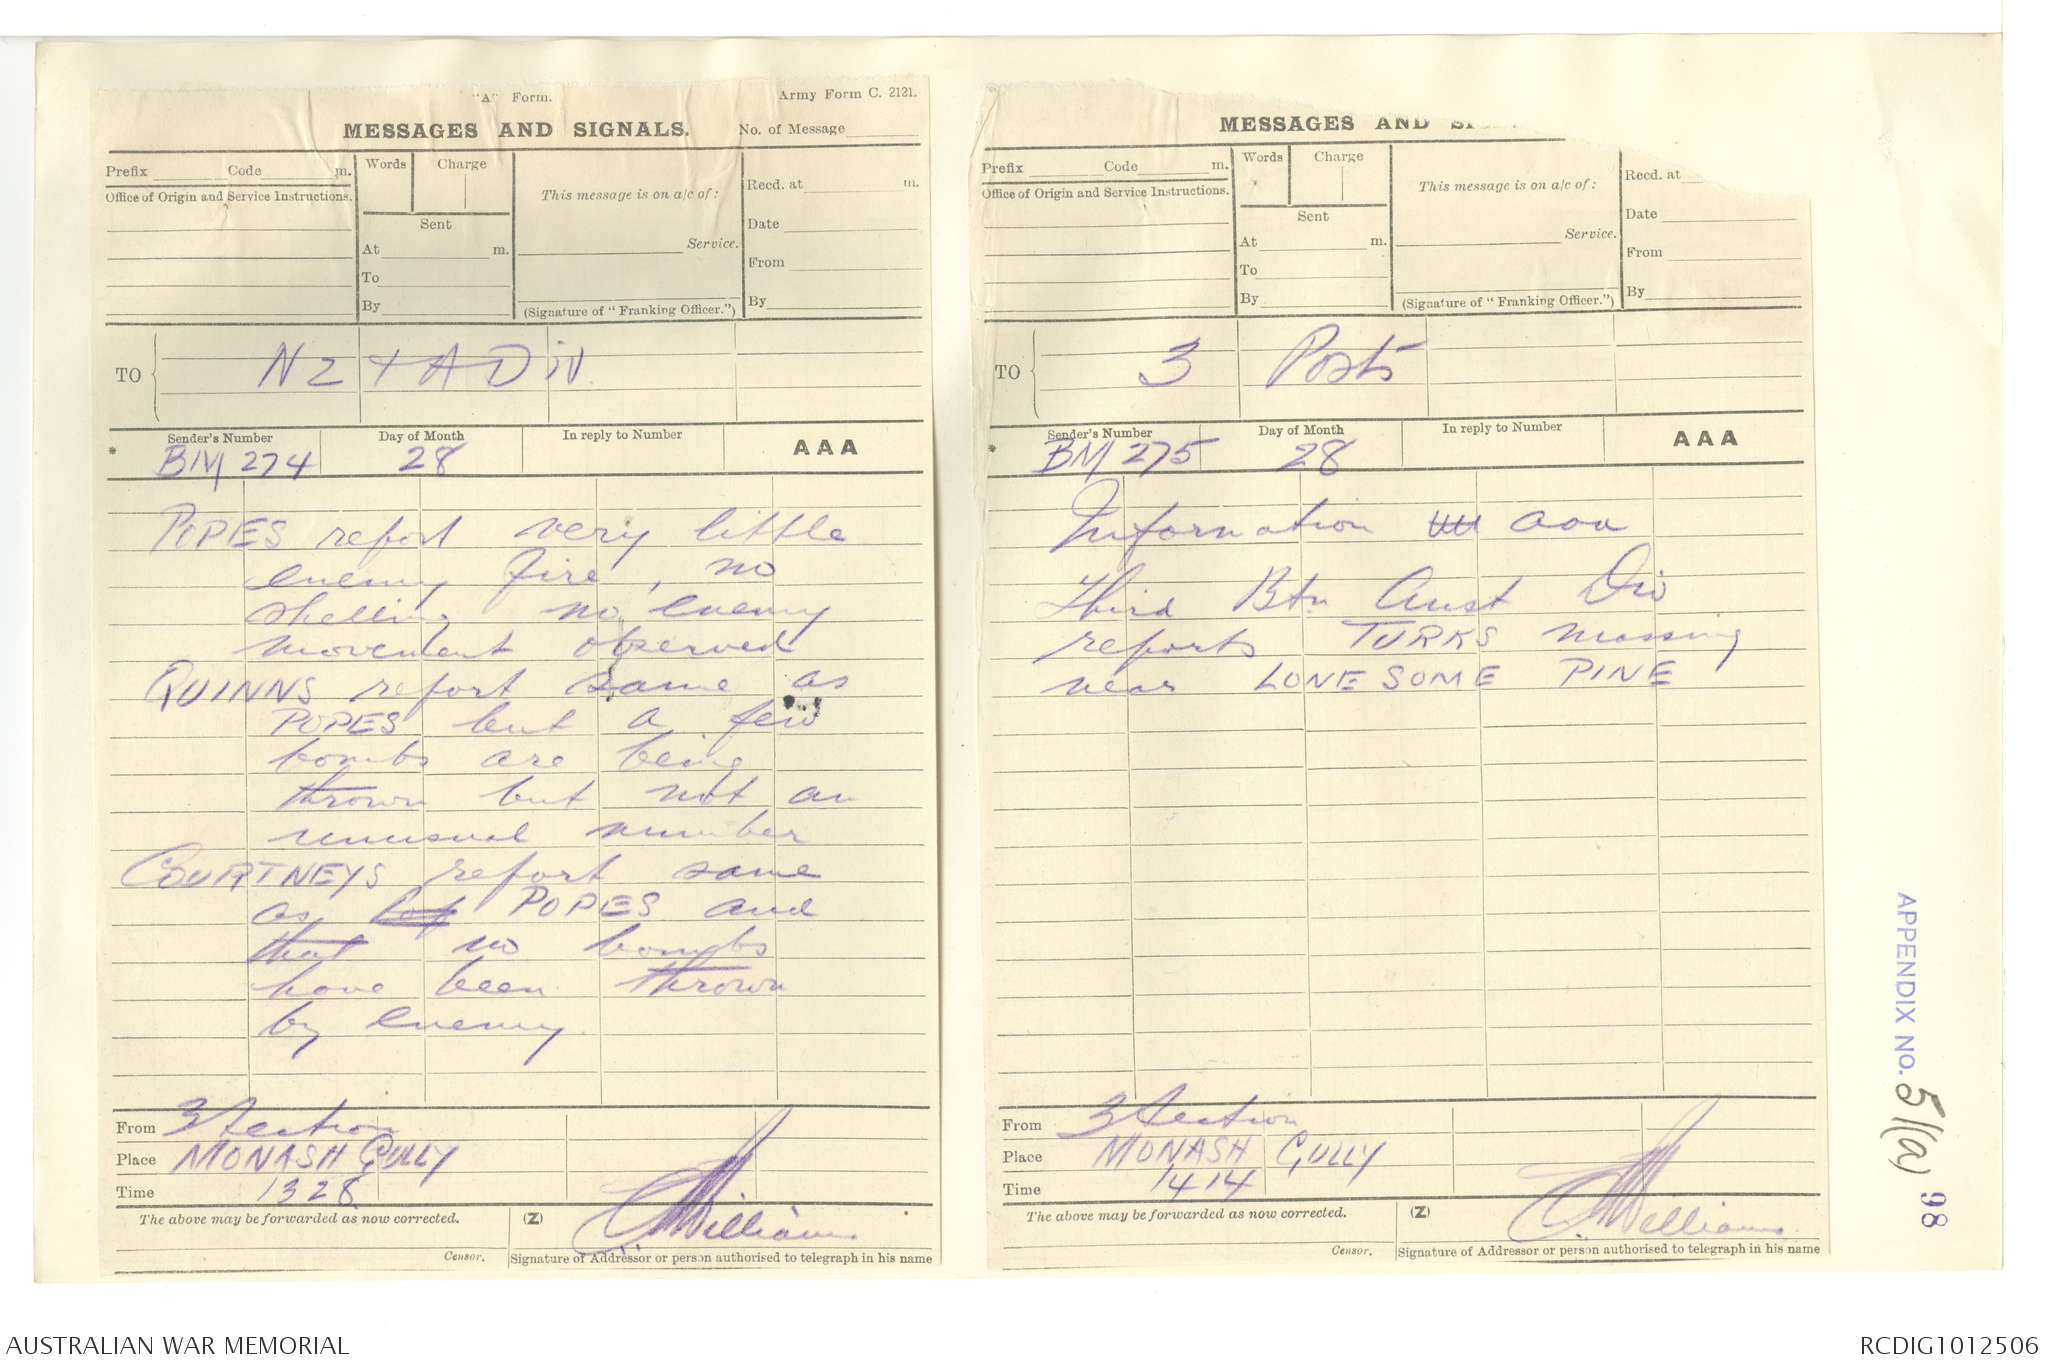 "A" Form.
Army Form C. 2121.
MESSAGES AND SIGNALS.
No. of Message
Prefix Code m.
Words Charge
This message is on a/c of:
Recd. at m.
Office of Origin and Service Instructions.
Sent
Date
At m.
Service.
From
To
By
(Signature of "Franking Officer.")
By
TO
NZ + A Div.
Sender's Number
Day of Month
In reply to Number
AAA
* BM 274
28
POPES report very little
enemy fire, no
shelling no enemy
movement observed
QUINNS report same as
POPES but a few
bombs are being
thrown but not an
unusual number
COURTNEYS report same
as POPES and
that no bombs
have been thrown
by enemy.
From 3 Section
Place MONASH GULLY
Time 1328
The above may be forwarded as now corrected.
(Z)
Williams
Censor.
Signature of Addressor or person authorised to telegraph in his name
MESSAGES AND
Prefix Code m.
Words Charge
This message is on a/c of:
Recd. at
Office of Origin and Service Instructions.
Sent
Date
At m.
Service.
From
To
By
(Signature of "Franking Officer.")
By
TO
3 Posts
Sender's Number
Day of Month
In reply to Number
AAA
* BM 275
28
Information aaa
Third Btn Aust Div
reports TURKS massing
near LONESOME PINE
From 3 Section
Place MONASH GULLY
Time 1414
The above may be forwarded as now corrected.
(Z)
Williams
Censor.
Signature of Addressor or person authorised to telegraph in his name
APPENDIX NO. 51(a) 98
AUSTRALIAN WAR MEMORIAL
RCDIG1012506